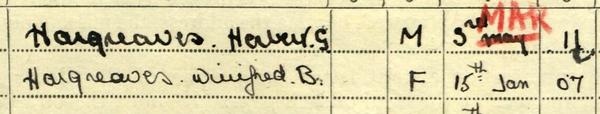 Hargreaves. Herbert. G M 3rd may MAR 11
Hargreaves. Winifred. B. F 15th Jan 07